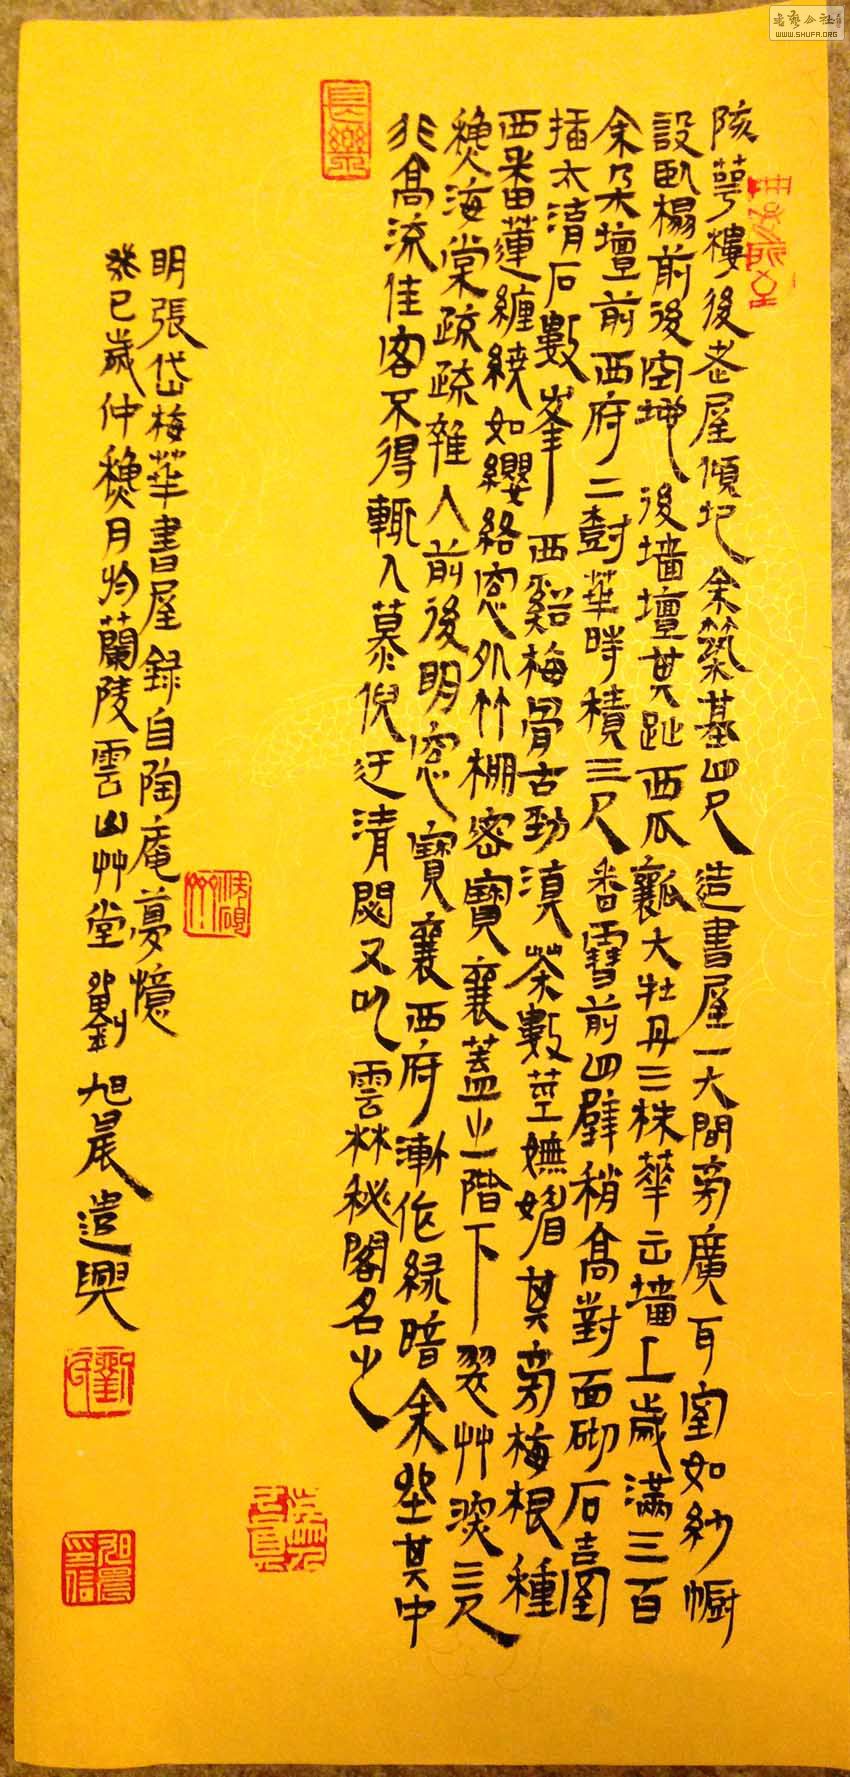 陔萼樓後老屋傾圮余築基四尺造書屋一大間旁廣耳室如紗幮
設臥榻前後空地後墻壇其趾西瓜瓤大牡丹三株華出墻上歲滿三百
余朵壇前西府二樹華時積三尺香雪前四壁稍高對面砌石臺
插太湖石數峯西谿梅骨古勁滇茶數莖嫵媚其旁梅根種
西番蓮纏繞如纓絡窓外竹棚密寶襄蓋之階下翠艸深三尺
穐海棠疏疏雜入前後明窓寶襄西府漸作緑暗余坐其中
非高流佳客不得輒入慕倪迂清閟又以雲林秘閣名之
明張岱梅華書屋録自陶庵夢憶
癸巳歲仲穐月於蘭陵雲山艸堂劉旭晨遣興
長樂
WWW.SHUFA.ORG